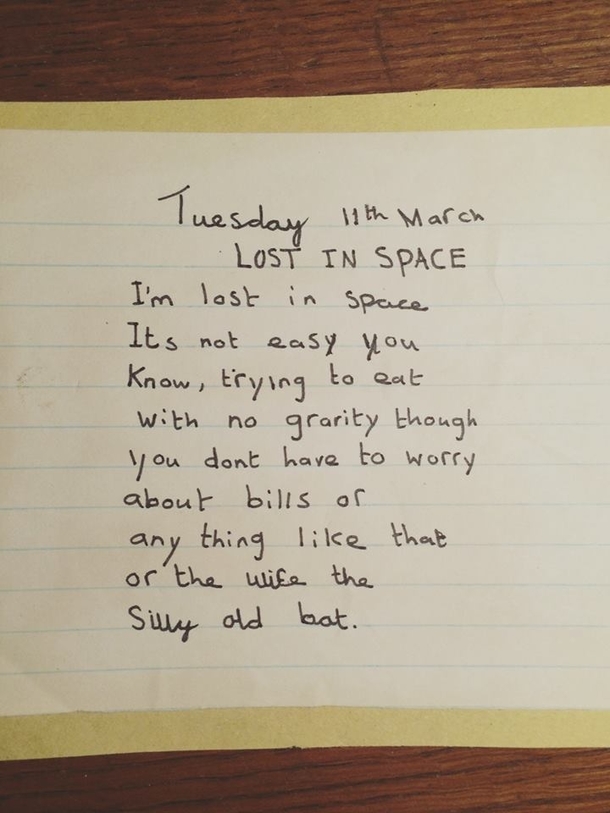 Tuesday 11th March
LOST IN SPACE
I'm lost in space
Its not easy you
Know, trying to eat
with no grarity though
you dont have to worry
about bills or
any thing like that
or the wife the
Silly old bat.